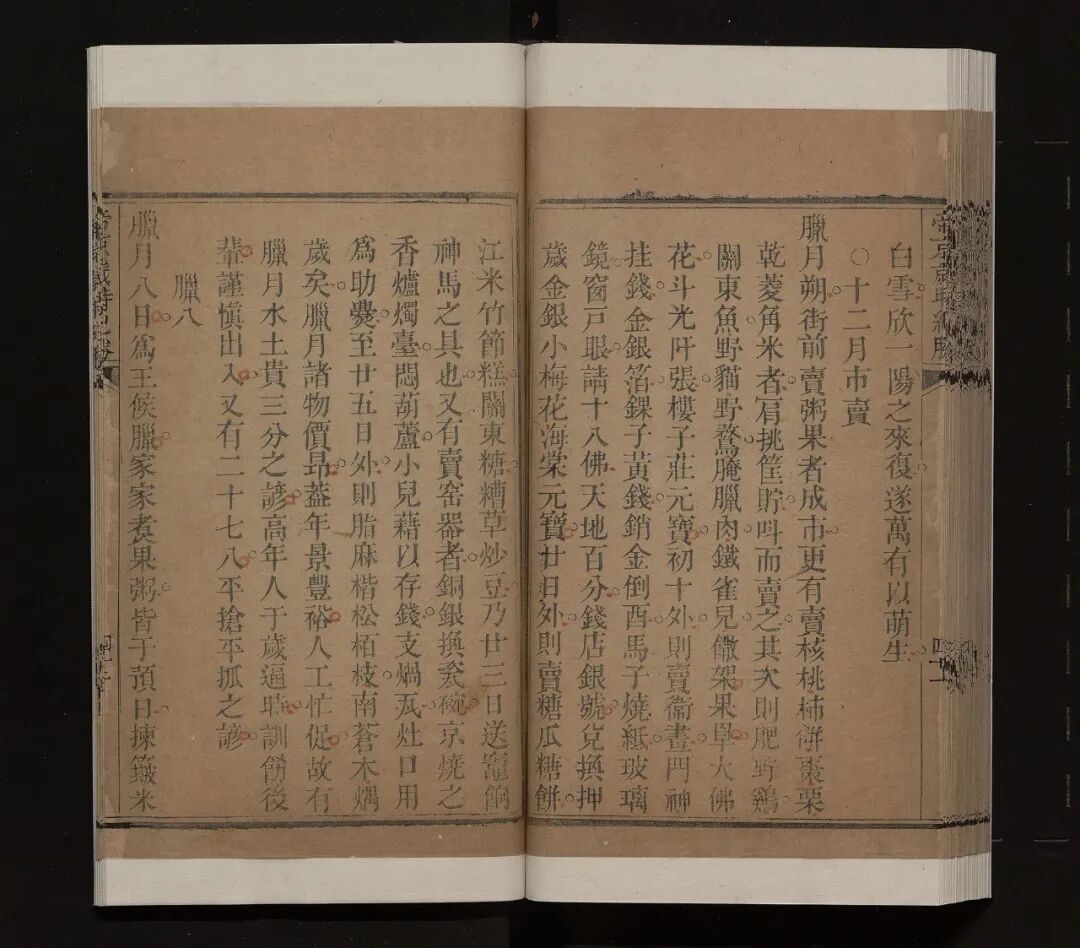 白雪欣一陽之來復遂萬有以萌生
○十二月市賣
臘月朔街前賣粥果者成市更有賣核桃柿餅棗栗
乾菱角米者肩挑筐貯呌而賣之其次則肥野鷄
關東魚野貓野鶩腌臘肉鐵雀兒饊架果早大佛
花斗光阡張樓子莊元寶初十外則賣衞畫門神
挂錢金銀箔錁子黃錢銷金倒酉馬子燒紙玻璃
鏡窗戶眼請十八佛天地百分錢店銀號兌換押
歲金銀小梅花海棠元寶廿日外則賣糖瓜糖餅
江米竹節糕關東糖糟草炒豆乃廿三日送竈餉
神馬之具也又有賣窑器者銅銀換瓷碗京燒之
香爐燭臺悶葫蘆小兒藉以存錢支煱瓦灶口用
爲助爨至廿五日外則脂麻楷松栢枝南蒼术煱
歲矣臘月諸物價昻葢年景豐裕人工忙促故有
臘月水土貴三分之諺高年人于歲逼時訓餝後
輩謹慎出入又有二十七八平搶平抓之諺
臘八
臘月八日爲王侯臘家家煑果粥皆于預日揀簸米
帝京歲時紀勝
四十二